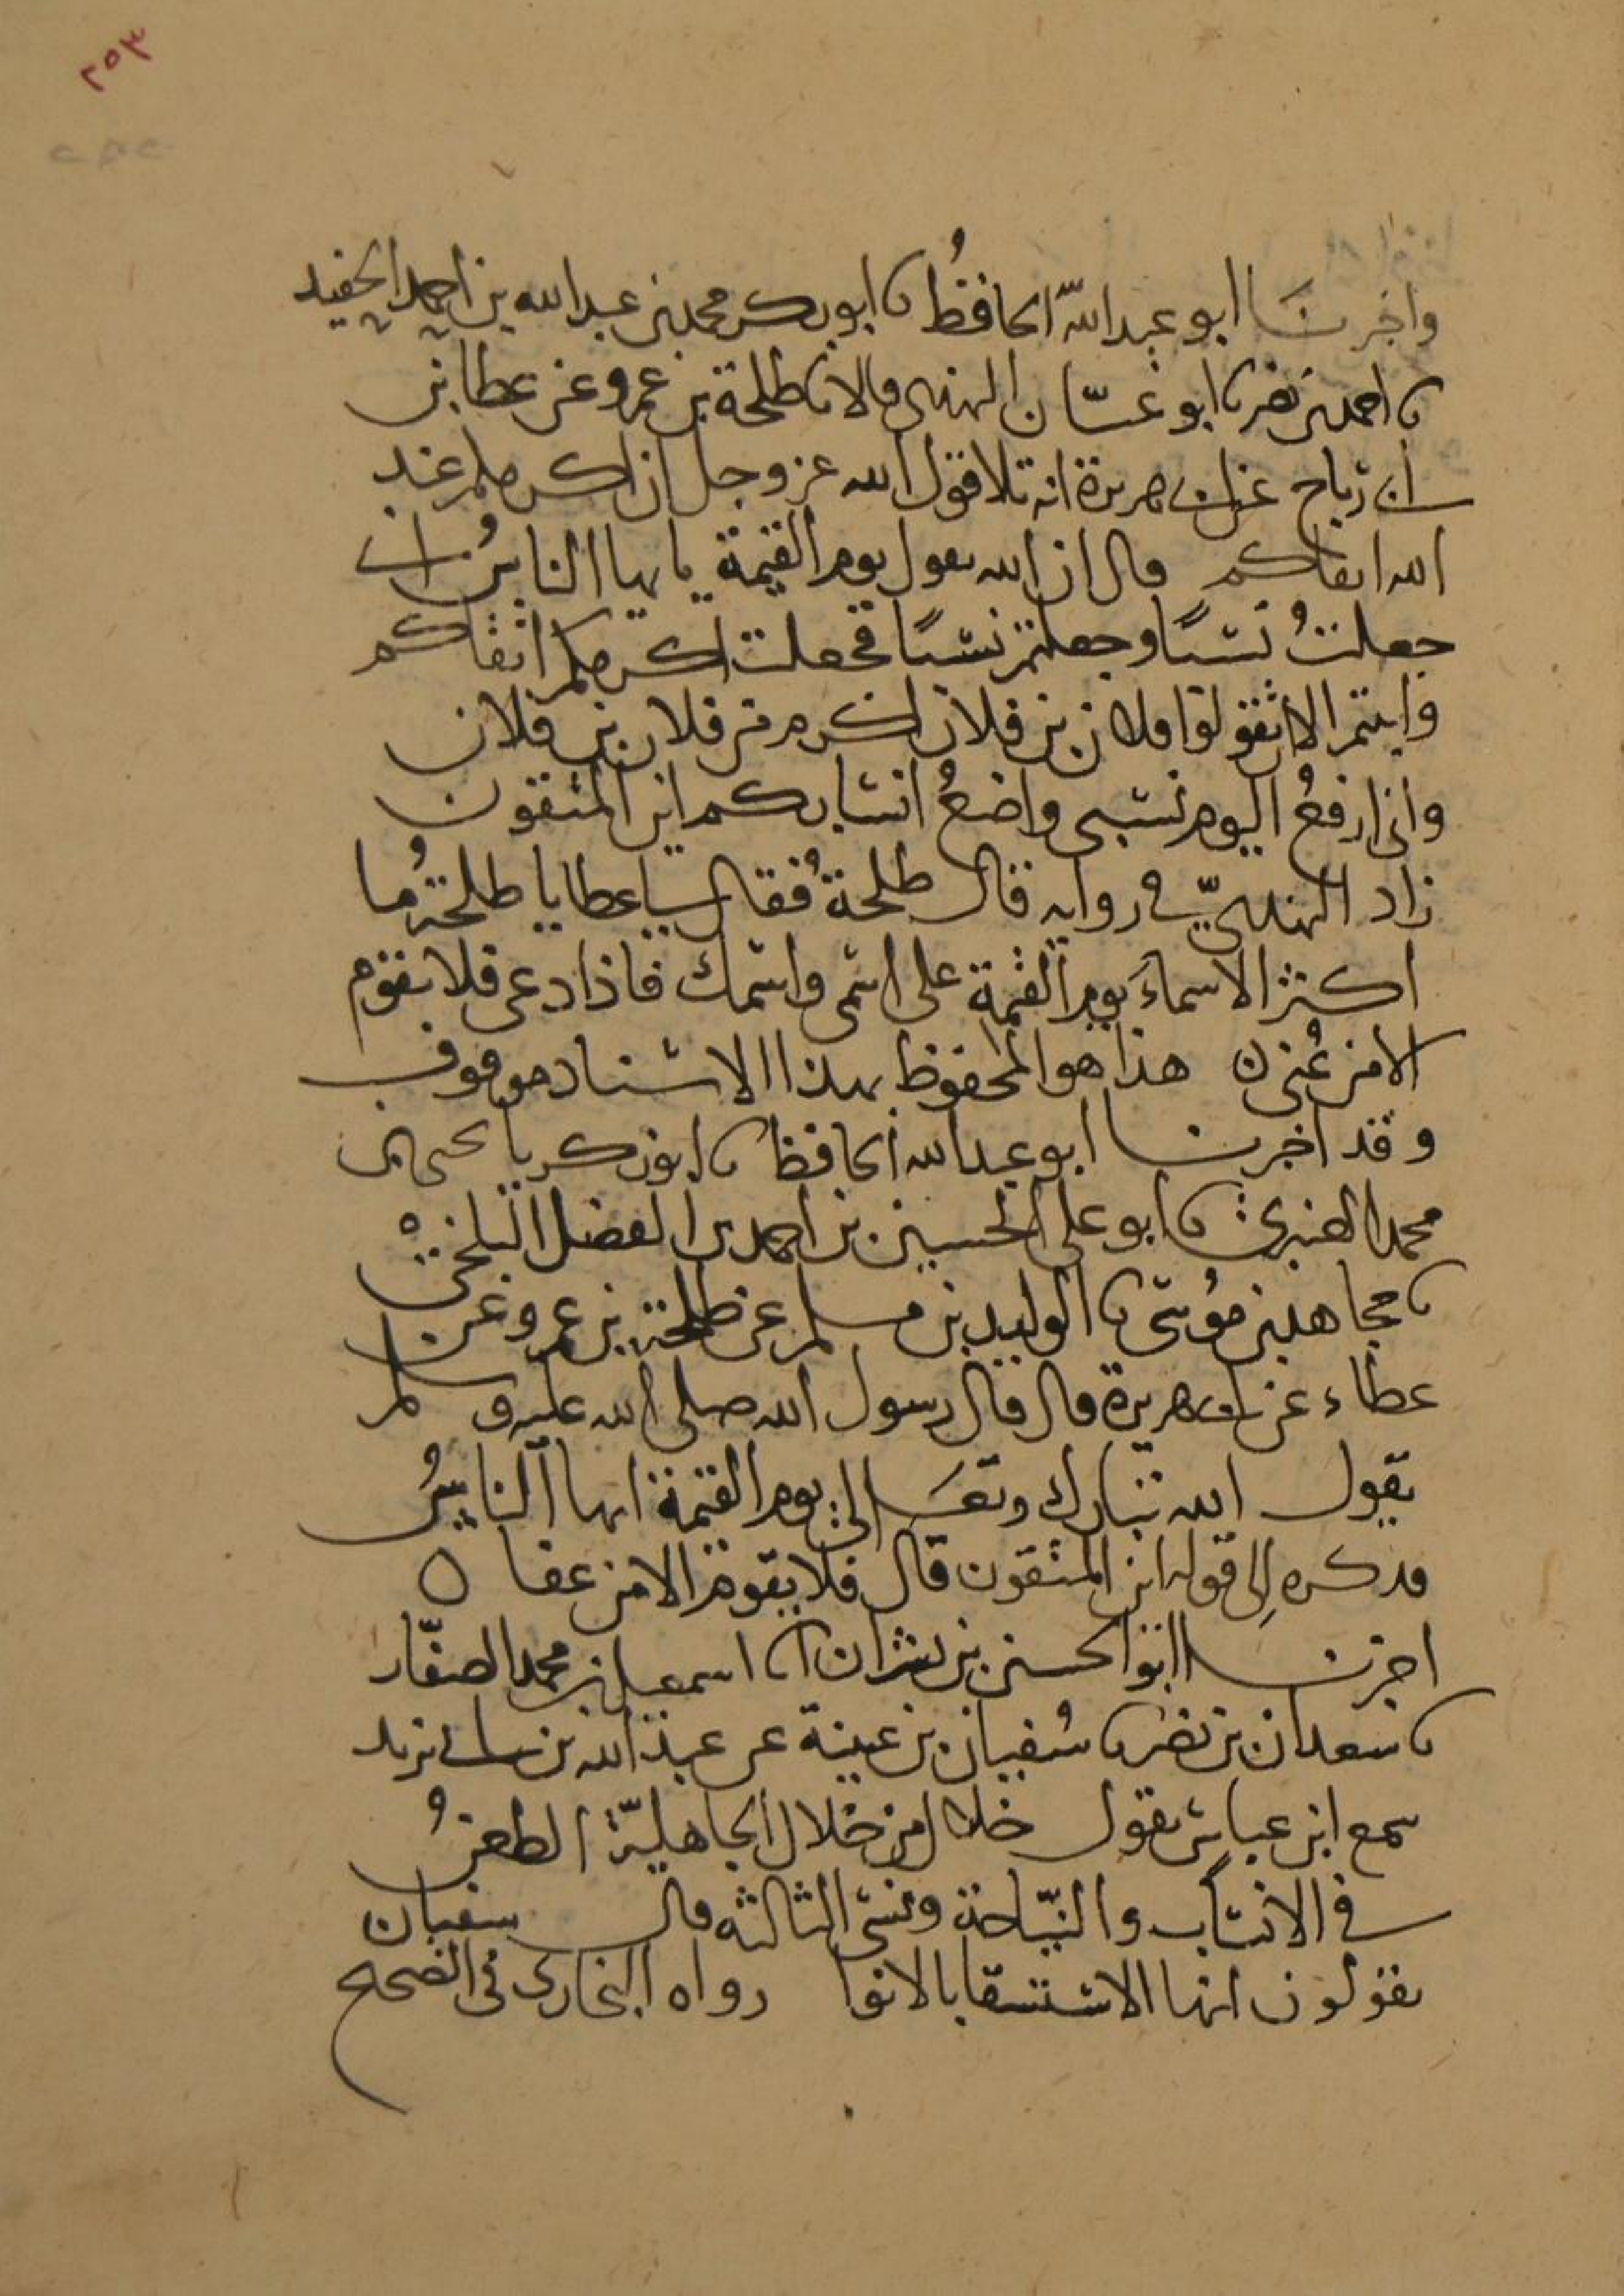 ٢٥٣
واخبرنا ابو عبد الله الحافظُ نا ابو بكر محمد بن عبد الله بن احمد الحفيد
نا احمد بن نصر نا ابو غسان النهدى قالا نا طلحة بن عمرو عن عطا بن
ابى رباح عن ابى هريرة انه تلا قول الله عز وجل ان اكرمكم عند
الله اتقاكم قال ان الله يقول يوم القيمة يا يها الناسُ انى
جعلتُ نسبًا وجعلتم نسبًا فجعلت اكرمكم اتقاكم
وابيتم الا ان تقولوا فلان بن فلان اكرم من فلان بن فلان
وانى ارفعُ اليوم نسبى واضعُ انسابكم اين المتقون
زاد النهدىّ فى روايه قال طلحةُ فقال لى عطا يا طلحةُ ما
اكثر الاسماءَ يوم القيمة على اسمى واسمك فاذا دعى فلا يقوم
الا من عُنى ٥ هذا هو المحفوظ بهذا الاسناد موقوف
وقد اخبرنا ابو عبد الله الحافظ نا ابو زكريا يحيى بن
محمد العنبرى نا ابو على الحسين بن احمد بن الفضل البلخى
نا مجاهد بن موسى نا الوليد بن مسلم عن طلحة بن عمرو عن
عطاء عن ابى هريرة قال قال رسول الله صلى الله عليه وسلم
يقول الله تبارك وتعَالى يوم القيمة ايها الناسُ
فذكره إلى قوله اين المتقون قال فلا يقوم الا من عفا ٥
اخبرنا ابو الحسين بن بشران انا اسمعيل بن محمد الصفّار
نا سعدان بن نصر نا سُفيان بن عيينة عن عبيد الله بن ابى يزيد
سمع ابن عباس يقول خلال من خلال الجاهليّة الطعنُ
فى الانساب والنيّاحة ونسى الثالثه قال سفيان
يقولون انها الاستسقا بالانوا رواه البخارى فى الصحيح